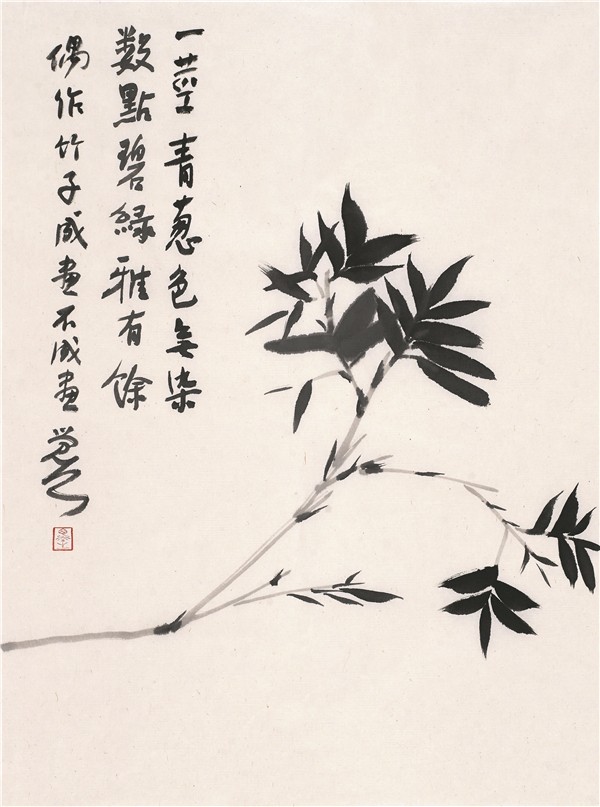 一莖青蔥色無染
數點碧綠雅有餘
偶作竹子成畫不成畫